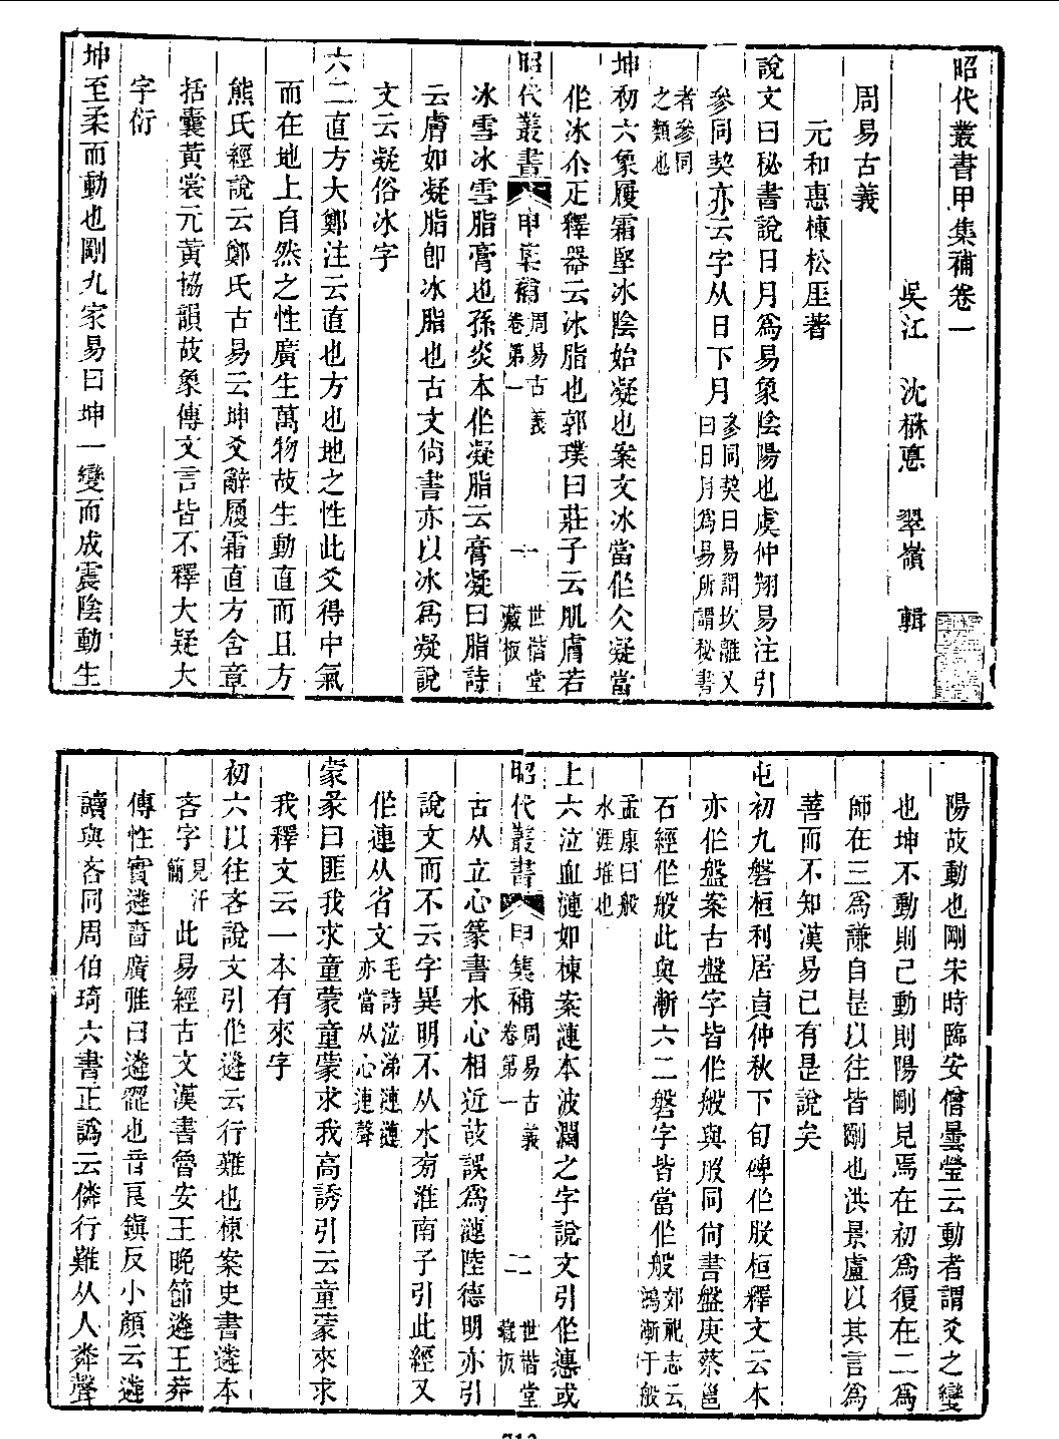 昭代叢書甲集補卷一
吳江 沈楙悳 翠嶺 輯
周易古義
元和惠棟松厓著
說文曰秘書說日月爲易象陰陽也虞仲翔易注引
參同契亦云字从日下月參同契曰易謂坎離又曰日月爲易所謂秘書
者參同之類也
坤初六象履霜堅冰陰始凝也案文冰當作仌凝當
作冰尒疋釋器云冰脂也郭璞曰莊子云肌膚若
昭代叢書 甲集補 周易古義卷第一 一 世楷堂藏板
冰雪冰雪脂膏也孫炎本作凝脂云膏凝曰脂詩
云膚如凝脂卽冰脂也古文尙書亦以冰爲凝說
文云凝俗冰字
六二直方大鄭注云直也方也地之性此爻得中氣
而在地上自然之性廣生萬物故生動直而且方
熊氏經說云鄭氏古易云坤爻辭履霜直方含章
括囊黃裳元黃協韻故象傳文言皆不釋大疑大
字衍
坤至柔而動也剛九家易曰坤一變而成震陰動生
陽故動也剛宋時臨安僧曇瑩云動者謂爻之變
也坤不動則已動則陽剛見焉在初爲復在二爲
師在三爲謙自是以往皆剛也洪景盧以其言爲
善而不知漢易已有是說矣
屯初九磐桓利居貞仲秋下旬碑作股桓釋文云本
亦作盤案古盤字皆作般與股同尙書盤庚蔡邕
石經作般此與漸六二磐字皆當作般郊祀志云鴻漸于般
孟康曰般水涯堆也
上六泣血漣如棟案漣本波瀾之字說文引作㦁或
昭代叢書 甲集補 周易古義卷第一 二 世楷堂藏板
古从立心篆書水心相近故誤爲漣陸德明亦引
說文而不云字異明不从水旁淮南子引此經又
作連从省文毛詩泣涕漣漣亦當从心連聲
蒙彖曰匪我求童蒙童蒙求我高誘引云童蒙來求
我釋文云一本有來字
初六以往吝說文引作遴云行難也棟案史書遴本
吝字見汗簡此易經古文漢書魯安王晩節遴王莽
傳性實遴嗇廣雅曰遴䍐也音艮鎭反小顏云遴
讀與吝同周伯琦六書正譌云僯行難从人粦聲